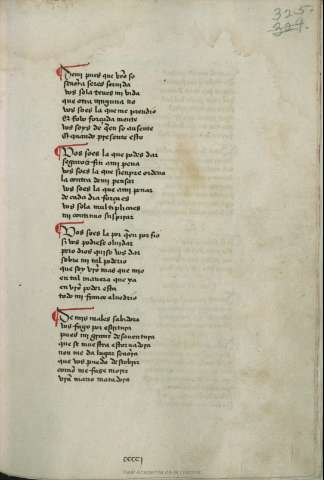 325
324
De mi pues que vr̃o so
señora seres seruida
vos sola tenes mi vida
que otra ninguna no
vos soes la que me prendio
Et fuso forçada mente
vos soys de quẽ so ausente
Et quando presente esto
Vos soes la que podes dar
seguro  fin a mi pena
vos soes la que siempre ordena
la contra de mi pensar
vos soes la que a mi penar
de cada dia forçaes
vos sola multiplicaes
mi continuo suspirar
Vos soes la por quẽ por fio
si vos podiese oluidar
pero dios quiso vos dar
sobre mi tal poderio
que soy vr̃o mas que mio
en tal manera que ya
en vr̃o poder esta
todo mi franco aluedrio
De mis males sabidora
vos fago por escritura
pues mi grant desauentura
que se muestra estoruadora
non me da lugar señora
que vos puedo descobrir
como me faze morir
vr̃a mano matadora
Real Academia de la Historia